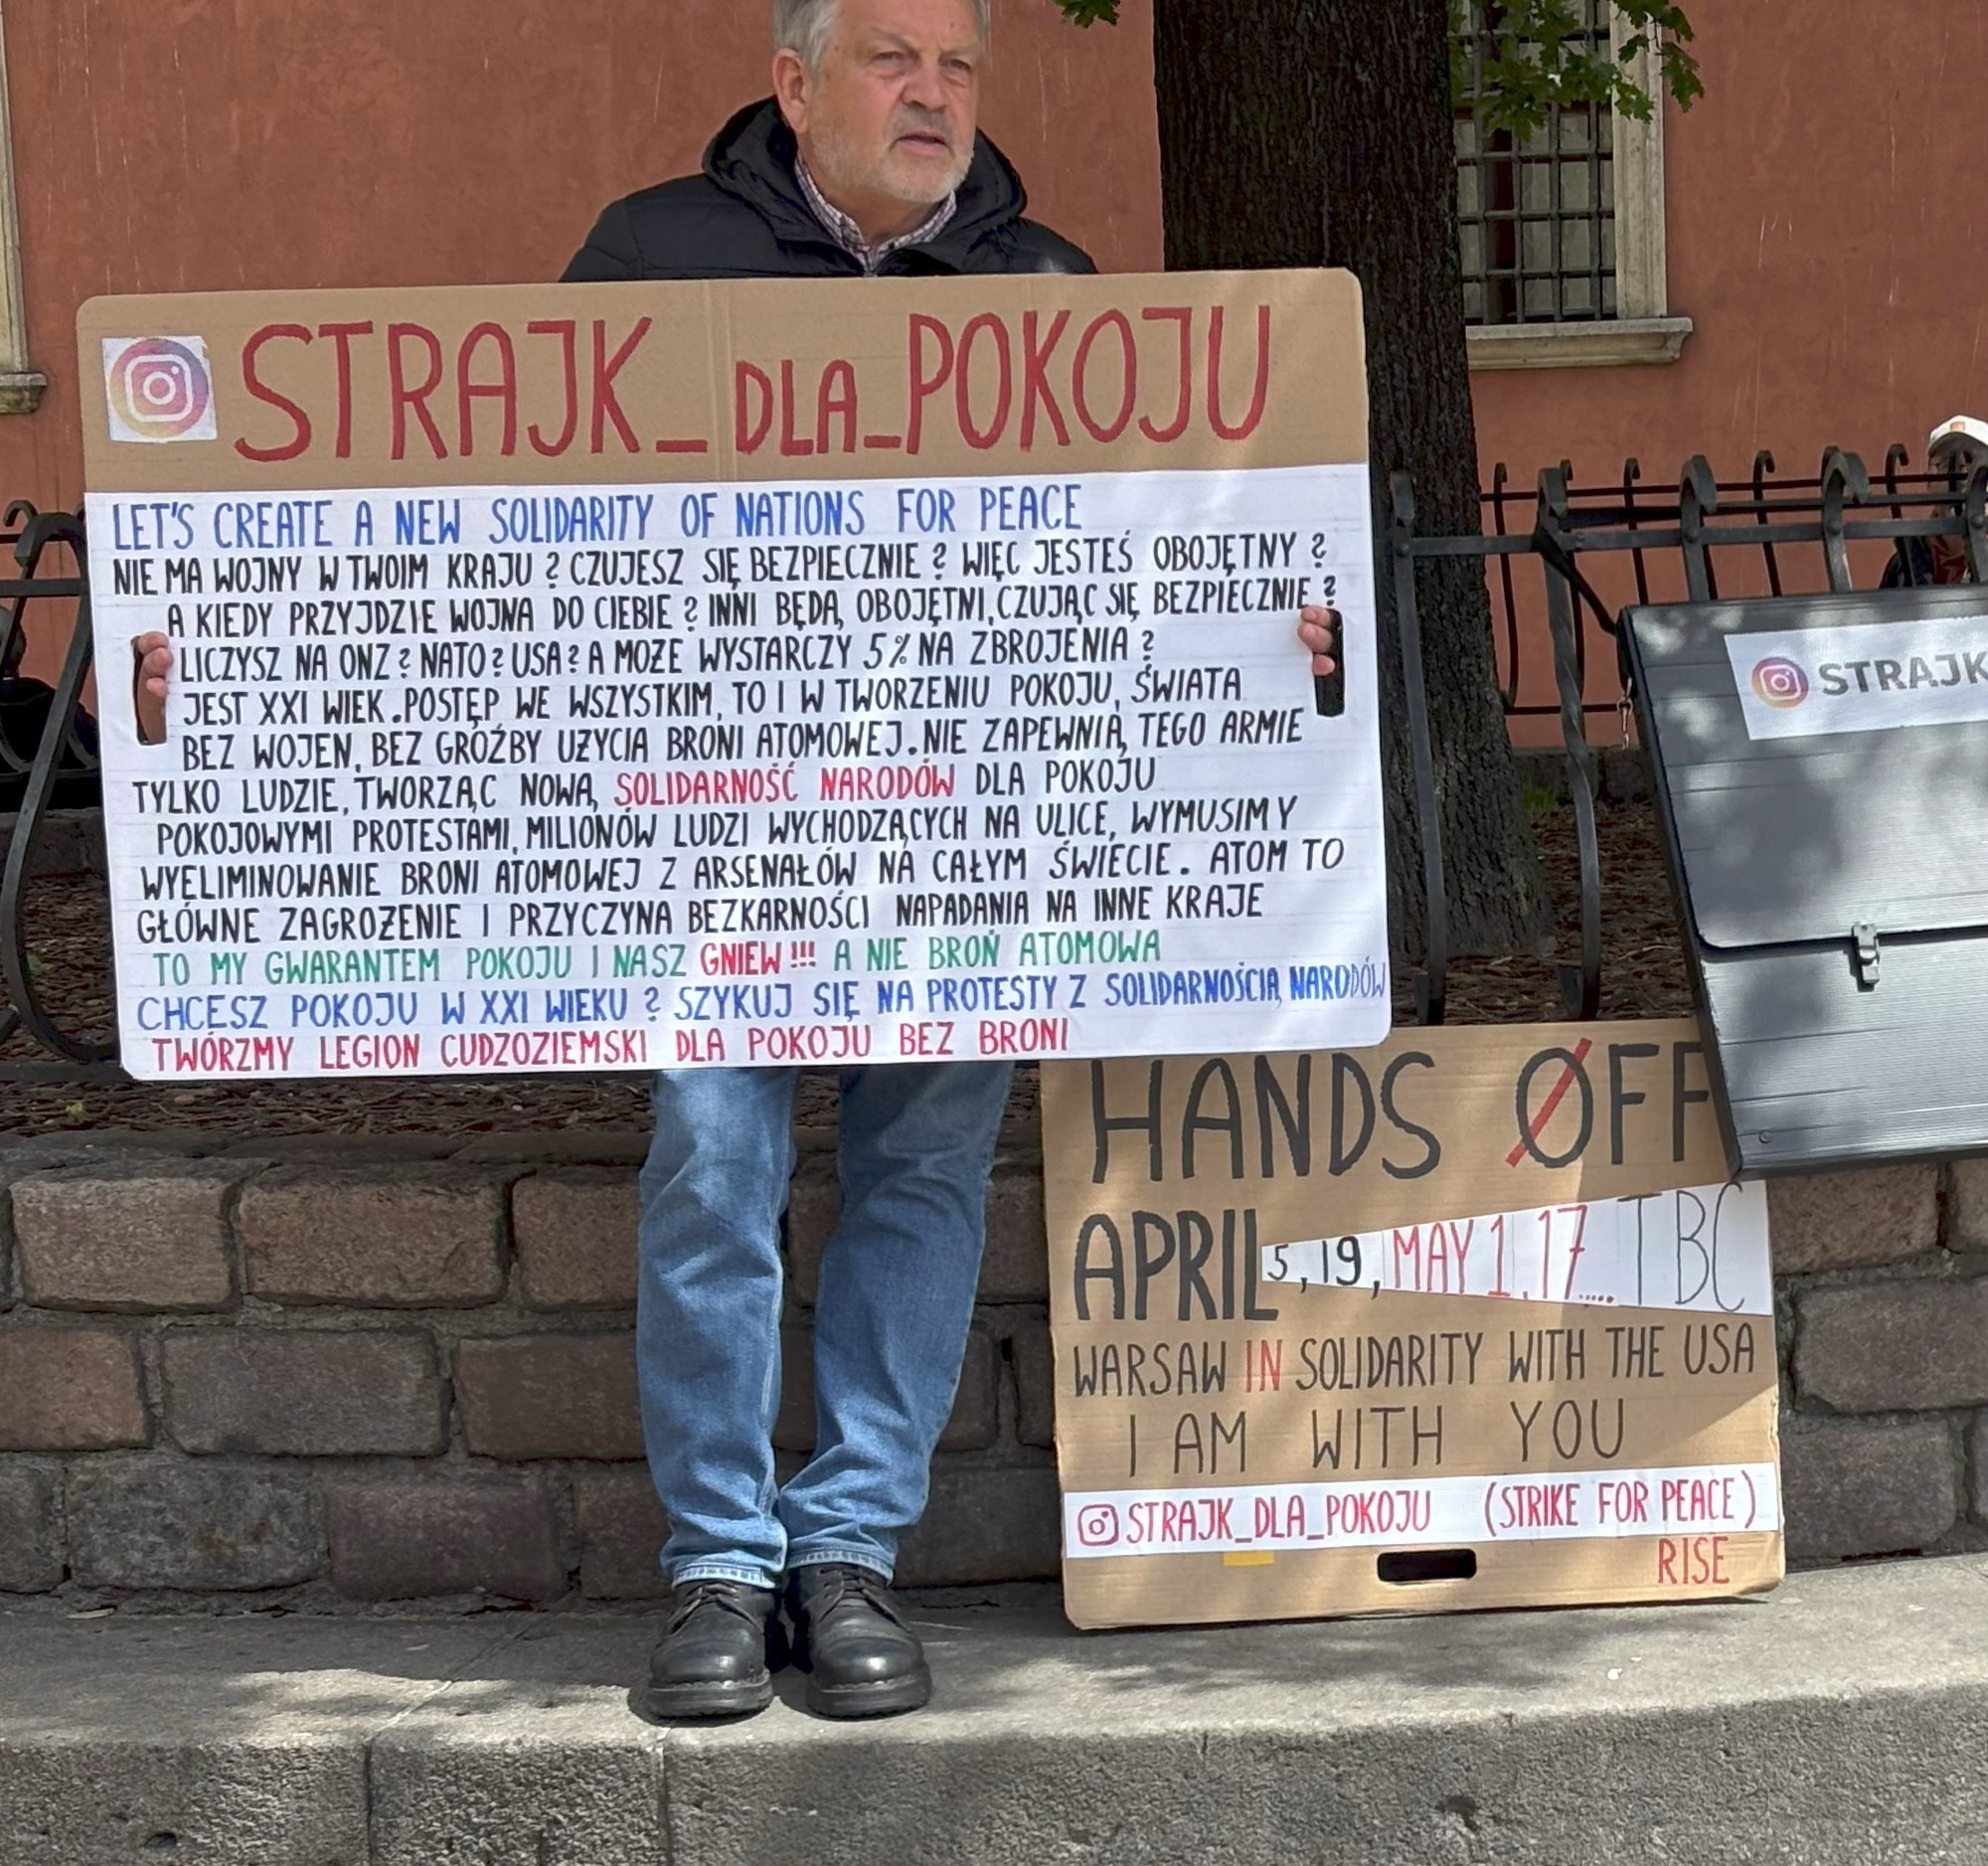 STRAJK_DLA_POKOJU
LET'S CREATE A NEW SOLIDARITY OF NATIONS FOR PEACE
NIE MA WOJNY W TWOIM KRAJU? CZUJESZ SIĘ BEZPIECZNIE? WIĘC JESTEŚ OBOJĘTNY?
A KIEDY PRZYJDZIE WOJNA DO CIEBIE? INNI BĘDĄ OBOJĘTNI, CZUJĄC SIĘ BEZPIECZNIE?
LICZYSZ NA ONZ? NATO? USA? A MOŻE WYSTARCZY 5% NA ZBROJENIA?
JEST XXI WIEK. POSTĘP WE WSZYSTKIM, TO I W TWORZENIU POKOJU, ŚWIATA
BEZ WOJEN, BEZ GROŹBY UŻYCIA BRONI ATOMOWEJ. NIE ZAPEWNIĄ TEGO ARMIE
TYLKO LUDZIE, TWORZĄC NOWĄ SOLIDARNOŚĆ NARODÓW DLA POKOJU
POKOJOWYMI PROTESTAMI, MILIONÓW LUDZI WYCHODZĄCYCH NA ULICE, WYMUSIMY
WYELIMINOWANIE BRONI ATOMOWEJ Z ARSENAŁÓW NA CAŁYM ŚWIECIE. ATOM TO
GŁÓWNE ZAGROŻENIE I PRZYCZYNA BEZKARNOŚCI NAPADANIA NA INNE KRAJE
TO MY GWARANTEM POKOJU I NASZ GNIEW!!! A NIE BROŃ ATOMOWA
CHCESZ POKOJU W XXI WIEKU? SZYKUJ SIĘ NA PROTESTY Z SOLIDARNOŚCIĄ NARODÓW
TWÓRZMY LEGION CUDZOZIEMSKI DLA POKOJU BEZ BRONI
STRAJK
HANDS OFF
APRIL 5, 19, MAY 1, 17..... TBC
WARSAW IN SOLIDARITY WITH THE USA
I AM WITH YOU
STRAJK_DLA_POKOJU (STRIKE FOR PEACE)
RISE